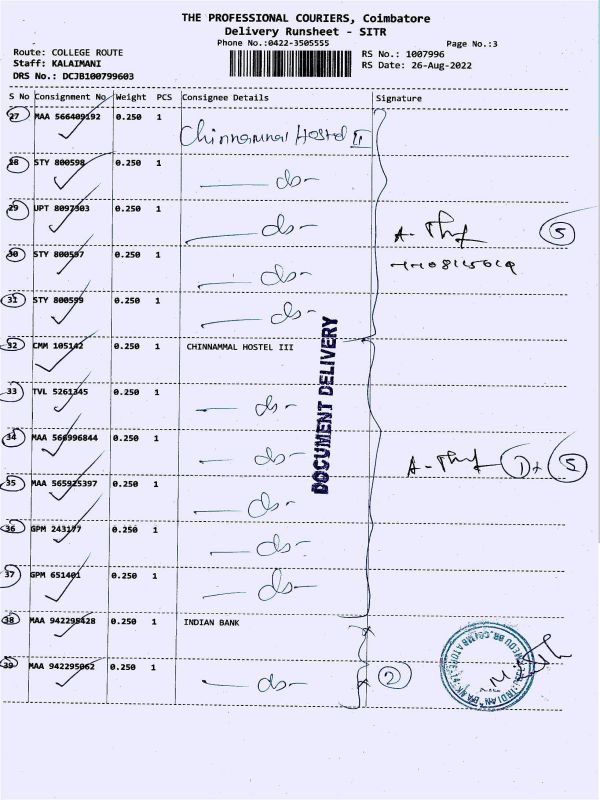 THE PROFESSIONAL COURIERS, Coimbatore
Delivery Runsheet - SITR
Phone No.:0422-3505555 Page No.:3
Route: COLLEGE ROUTE RS No.: 1007996
Staff: KALAIMANI RS Date: 26-Aug-2022
DRS No.: DCJB100799603
S No Consignment No Weight PCS Consignee Details Signature
27 MAA 566409192 0.250 1
Chinnammal Hostel II
28 STY 800598 0.250 1
do
29 UPT 8097303 0.250 1
do
5
30 STY 800597 0.250 1
do
31 STY 800599 0.250 1
do
32 CMM 105142 0.250 1 CHINNAMMAL HOSTEL III
33 TVL 5261345 0.250 1
do
34 MAA 566996844 0.250 1
do
35 MAA 565925397 0.250 1
do
36 GPM 243177 0.250 1
do
37 GPM 651401 0.250 1
do
DOCUMENT DELIVERY
38 MAA 942295428 0.250 1 INDIAN BANK
39 MAA 942295062 0.250 1
do
2